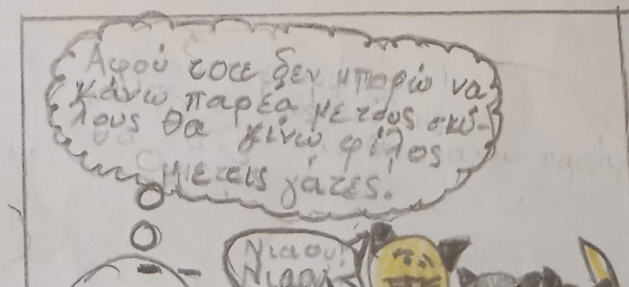 Αφού τοτε δεν μπορώ να
κάνω παρέα με τους σκύ-
λους θα γίνω φίλος
με τεις γάτες!
Νιαου!
Νιαου